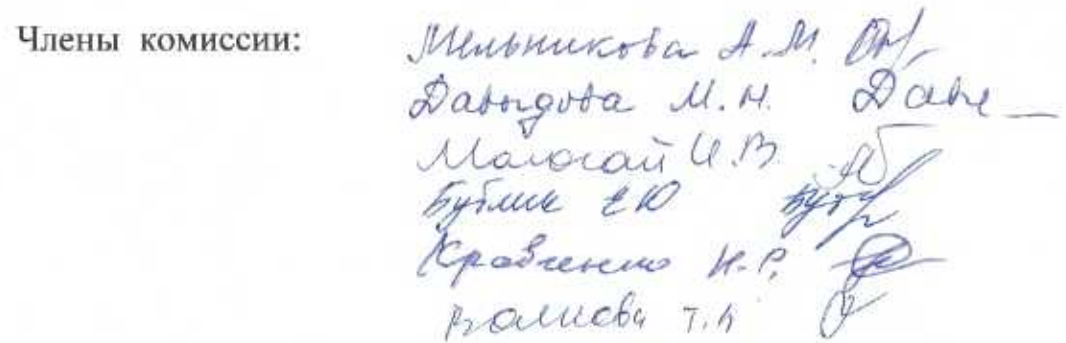 Члены комиссии: Мельникова А.М.
Давыдова М.Н. Давы
Малогай И.В.
Бублик Е Ю
Кравченко Н.Р.
Т.Н